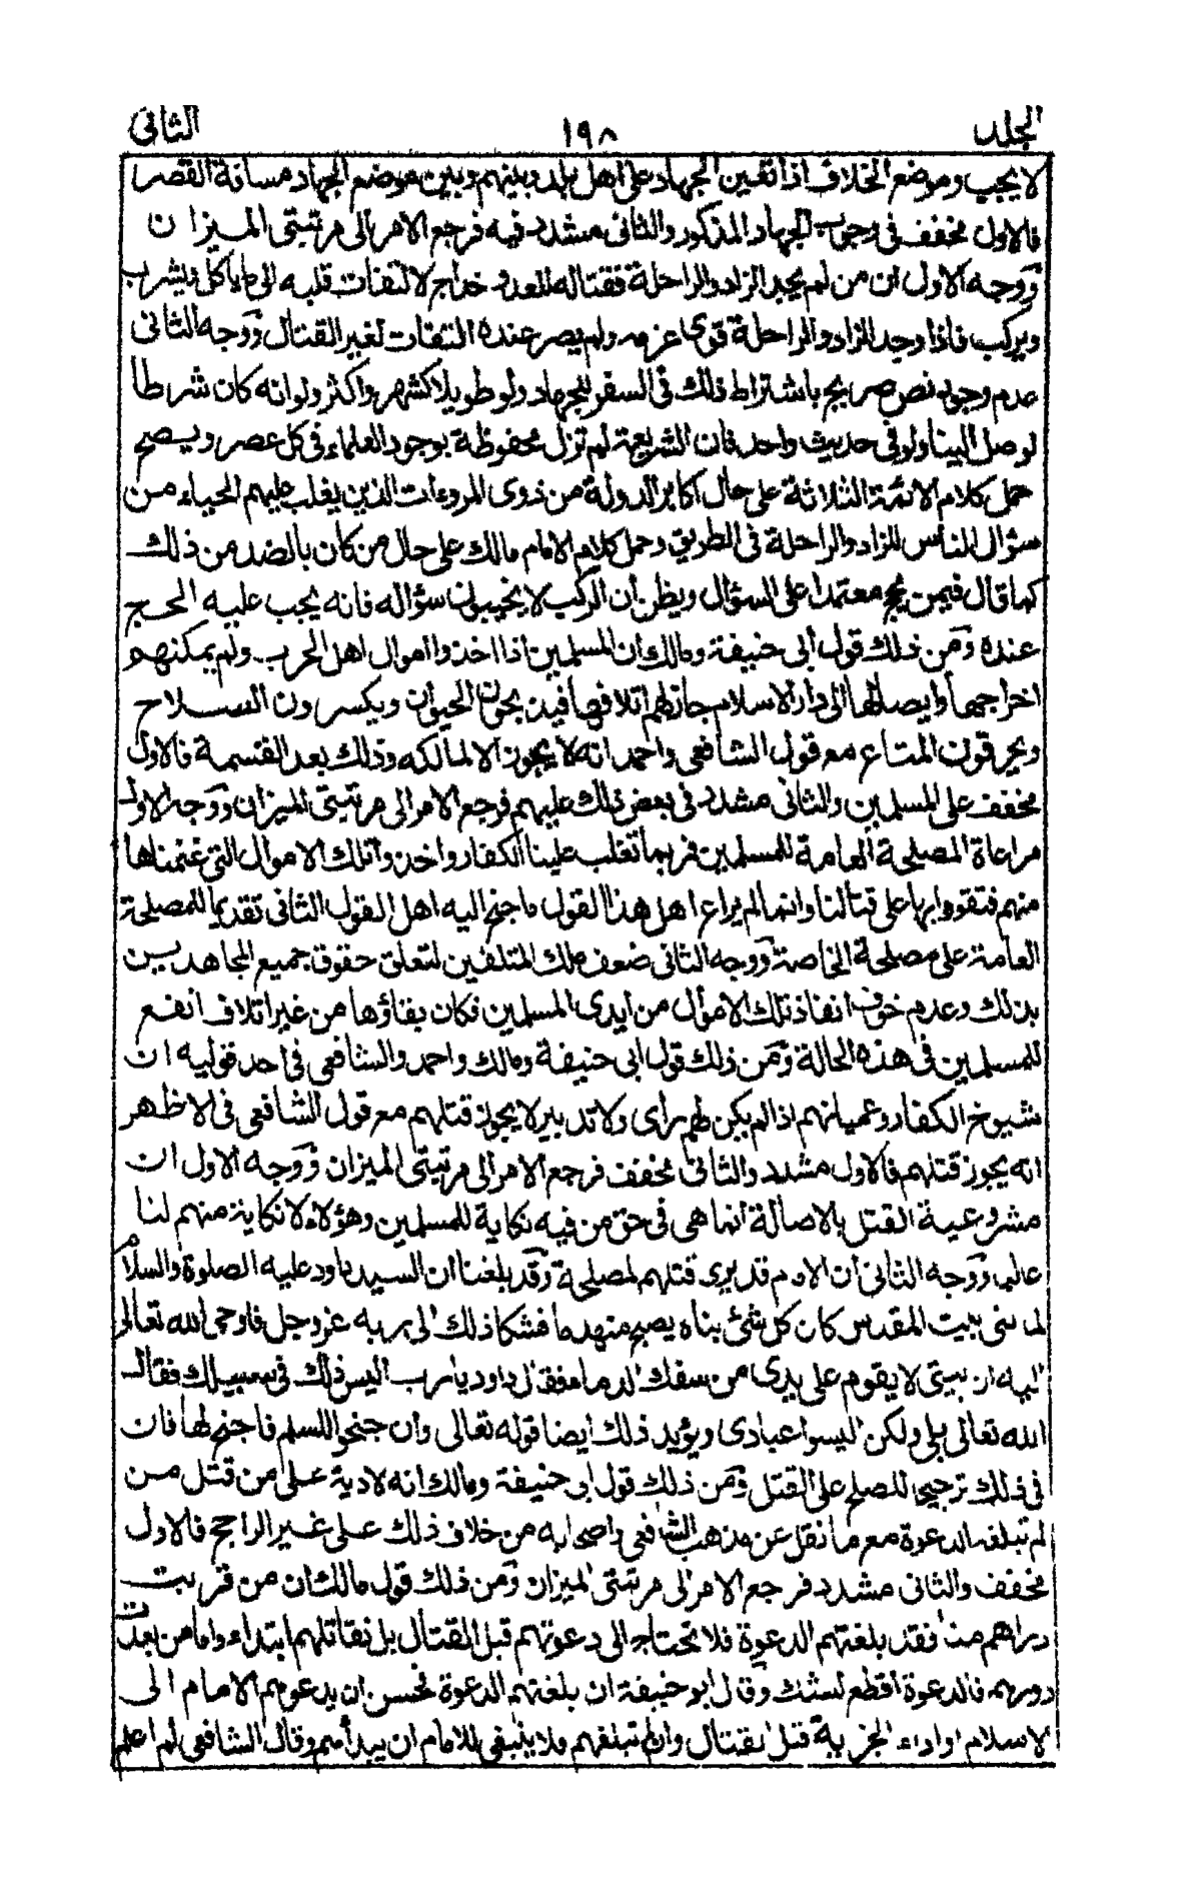 الجلد ١٩٨ الثانى
لا يجب وموضع الخلاف اذا تعين الجهاد على اهل بلد وبينهم وبين موضع الجهاد مسافة القصر
فالاول مخفف فى وجوب الجهاد المذكور والثانى مشدد فيه فرجع الامر الى مرتبتى الميزان
ووجه الاول ان من لم يجد الزاد والراحلة فقتاله للعدو خداج لالتفات قلبه الى ما ياكل ويشرب
ويركب فاذا وجد الزاد والراحلة قوى عزمه ولم يصر عنده التفات لغير القتال ووجه الثانى
عدم وجود نص صريح باشتراط ذلك فى السفر للجهاد ولو طويلا كشهر واكثر ولو انه كان شرطا
لوصل الينا ولو فى حديث واحد فان الشريعة لم تزل محفوظة بوجود العلماء فى كل عصر ويصح
حمل كلام الائمة الثلاثة على حال اكابر الدولة من ذوى المروءات الذين يغلب عليهم الحياء من
سؤال الناس الزاد والراحلة فى الطريق وحمل كلام الامام مالك على حال من كان بالضد من ذلك
كما قال فيمن يحج معتمدا على السؤال ويظن ان الركب لا يخيبون سؤاله فانه يجب عليه الحج
عنده ومن ذلك قول ابى حنيفة ومالك ان المسلمين اذا اخذوا اموال اهل الحرب ولم يمكنهم
اخراجها وايصالها الى دار الاسلام جاز لهم اتلافها فيذبحون الحيوان ويكسرون السلاح
ويحرقون المتاع مع قول الشافعى واحمد انه لا يجوز الا لمالكه وذلك بعد القسمة فالاول
مخفف على المسلمين والثانى مشدد فى بعض ذلك عليهم فرجع الامر الى مرتبتى الميزان ووجه الاول
مراعاة المصلحة العامة للمسلمين فربما تغلب علينا الكفار واخذوا تلك الاموال التى غنمناها
منهم فتقووا بها على قتالنا وانما لم يراع اهل هذا القول ما جنح اليه اهل القول الثانى تقديما للمصلحة
العامة على مصلحة الخاصة ووجه الثانى ضعف ملك المتلفين لتعلق حقوق جميع المجاهدين
بذلك وعدم خوف انفاذ تلك الاموال من ايدى المسلمين فكان بقاؤها من غير اتلاف انفع
للمسلمين فى هذه الحالة ومن ذلك قول ابى حنيفة ومالك واحمد والشافعى فى احد قوليه ان
شيوخ الكفار وعميانهم اذا لم يكن لهم رأى ولا تدبير لا يجوز قتلهم مع قول الشافعى فى الاظهر
انه يجوز قتلهم فالاول مشدد والثانى مخفف فرجع الامر الى مرتبتى الميزان ووجه الاول ان
مشروعية القتل بالاصالة انما هى فى حق من فيه نكاية للمسلمين وهؤلاء لا نكاية منهم لنا
غالبا ووجه الثانى ان الامام قد يرى قتلهم لمصلحة وقد بلغنا ان السيد داود عليه الصلوة والسلام
لما بنى بيت المقدس كان كل شئ بناه يصبح منهدما فشكا ذلك الى ربه عز وجل فاوحى الله تعالى
اليه ان بيتى لا يقوم على يدى من سفك الدماء فقال داود يا رب اليس ذلك فى سبيلك فقال
الله تعالى بلى ولكن اليسوا عبادى ويؤيد ذلك ايضا قوله تعالى وان جنحوا للسلم فاجنح لها فان
فى ذلك ترجيحا للصلح على القتل ومن ذلك قول ابى حنيفة ومالك انه لا دية على من قتل من
لم تبلغه الدعوة مع ما نقل عن مذهب الشافعى واصحابه من خلاف ذلك على غير الراجح فالاول
مخفف والثانى مشدد فرجع الامر الى مرتبتى الميزان ومن ذلك قول مالك ان من قربت
دراهم منا فقد بلغتهم الدعوة فلا نحتاج الى دعوتهم قبل القتال بل نقاتلهم ابتداء واما من بعدت
دورهم فالدعوة اقطع لشك وقال ابو حنيفة ان بلغتهم الدعوة فحسن ان يدعوهم الامام الى
الاسلام او اداء الجزية قبل القتال وان لم تبلغهم فلا ينبغى للامام ان يبدأهم وقال الشافعى لم اعلم